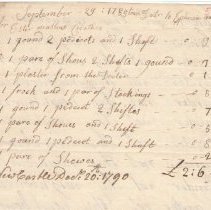 September 29: 1789 to Ephraim
making Cloaths
1 gound 2 peticots and 1 Shift - 0
1 pare of Shous 2 Shifts 1 gound - 0
1 from the Docter - 0
1 frock and 1 pare of Stockings - 0
1 gound 1 peticot 2 Shiftes - 0
1 pare of Shoues and 1 Shift - 0
1 gound 1 peticot and 1 Shift - 0
1 pare of Shewes - 0
New Castle Decr 20th 1790 £2:6